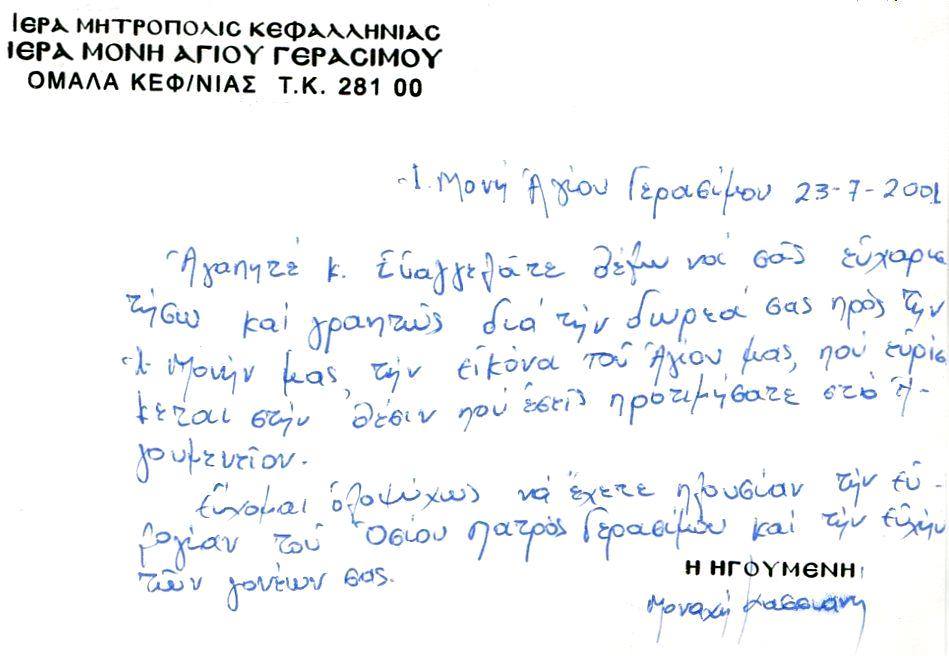 ΙΕΡΑ ΜΗΤΡΟΠΟΛΙС ΚΕΦΑΛΛΗΝΙΑС
ΙΕΡΑ ΜΟΝΗ ΑΓΙΟΥ ΓΕΡΑСΙΜΟΥ
ΟΜΑΛΑ ΚΕΦ/ΝΙΑΣ Τ.Κ. 281 00
Ἱ. Μονή Ἁγίου Γερασίμου 23-7-2001
Ἀγαπητέ κ. Εὐαγγελάτε θέλω νά σᾶς εὐχαρισ
τήσω καί γραπτῶς διά τήν δωρεά σας πρός τήν
Ἱ. Μονήν μας, τήν εἰκόνα τοῦ Ἁγίου μας, πού εὑρίσ
κεται στήν θέσιν πού ἐσεῖς προτιμήσατε στό ἡ-
γουμενεῖον.
Εὔχομαι ὁλοψύχως νά ἔχετε πλουσίαν τήν εὐ-
λογίαν τοῦ Ὁσίου Πατρός Γερασίμου καί τήν εὐχήν
τῶν γονέων σας.
Η ΗΓΟΥΜΕΝΗ
Μοναχή Κασσιανή